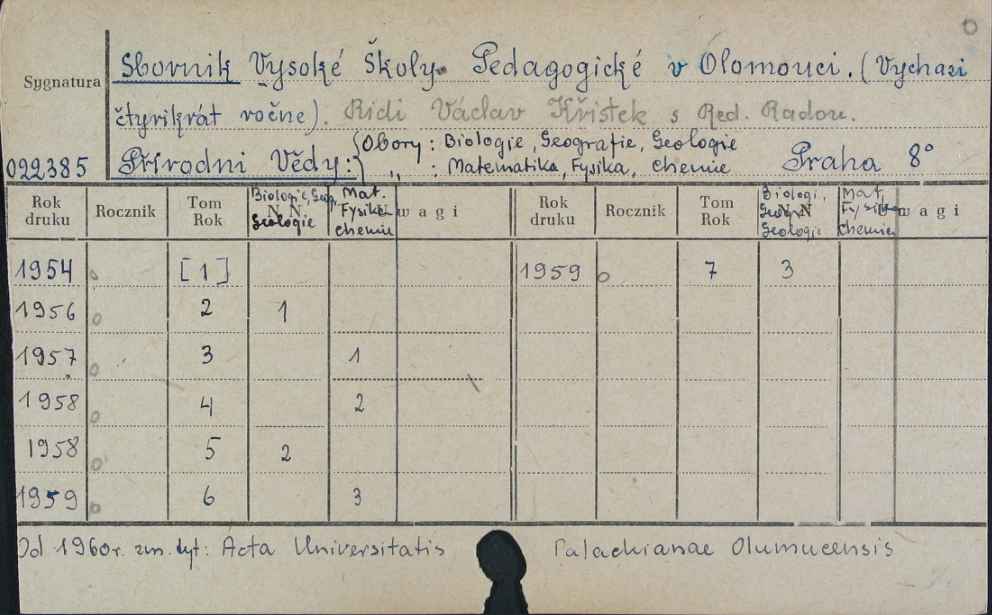 Sygnatura
Sborník Vysoké Školy Pedagogické v Olomouci. (Vychazi
čtyrikrát ročne). Ridi Václav Křístek s Red. Radou.
022385 Přírodni Vědy: { Obory : Biologie, Geografie, Geologie
„ : Matematika, Fysika, chemie Praha 8°
Rok druku Rocznik Tom Rok Biologie, Geogr. Geologie Mat. Fysika chemie wagi Rok druku Rocznik Tom Rok Biologi, Geologi Mat. Fysika chemie wagi
1954 [1] 1959 7 3
1956 2 1
1957 3 1
1958 4 2
1958 5 2
1959 6 3
Od 1960r. zm. tyt: Acta Universitatis Palackianae Olomucensis